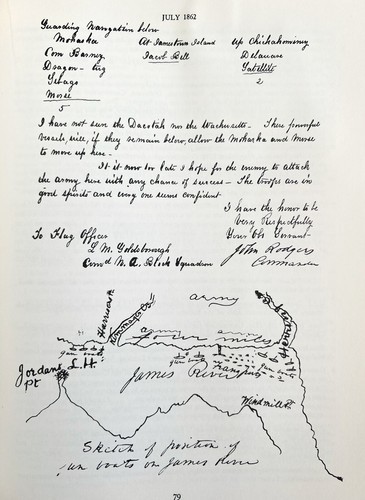 JULY 1862
Guarding Navigation below
Mohaska At Jamestown Island Up Chickahominy
Com Barney Jacob Bell Delaware
Dragon - tug Satellite
Sebago 2
Morse
5
I have not seen the Dacotah nor the Wachusetts - These powerful
vessels, will, if they remain below, allow the Mohaska and Morse
to move up here -
It is now too late I hope for the enemy to attack
the army here with any chance of success - The troops are in
good spirits and every one seems confident
I have the honor to be
Very Respectfully
Your Obt Servant
To Flag Officer John Rodgers
L. M. Goldsborough Commander
Comd N. A. Block Squadron
army
army
four miles
gun boats
L.H.
Jordans
Pt
James River
gun boats
Transports
gun boats
Windmill Pt.
Sketch of position of
gun boats on James River
79